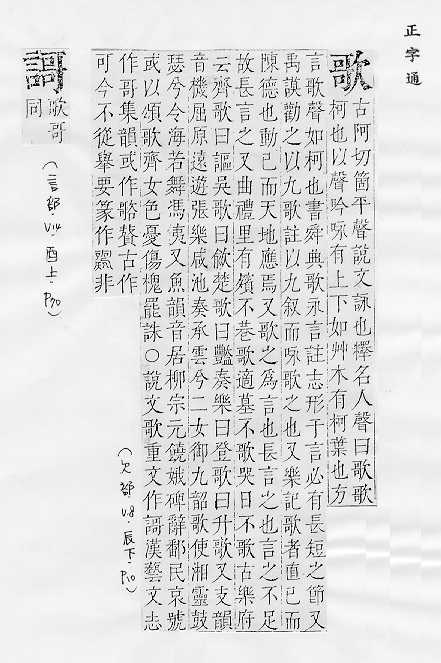 正字通
歌
古阿切箇平聲說文詠也釋名人聲曰歌歌
柯也以聲吟咏有上下如艸木有柯葉也方
言歌聲如柯也書舜典歌永言註志形于言必有長短之節又
禹謨勸之以九歌註以九叙而咏歌之也又樂記歌者直己而
陳德也動己而天地應焉又歌之爲言也長言之也言之不足
故長言之又曲禮里有殯不巷歌適墓不歌哭日不歌古樂府
云齊歌曰謳吳歌曰歈楚歌曰豔奏樂曰登歌曰升歌又支韻
音機屈原遠遊張樂咸池奏承雲兮二女御九韶歌使湘靈鼓
瑟兮令海若舞馮夷又魚韻音居柳宗元饒娥碑辭鄱民哀號
或以頌歌齊女色憂傷槐罷誅○說文歌重文作謌漢藝文志
作哥集韻或作𣤩賛古作
可今不從舉要篆作𣤶非
謌
歌哥
同
(言部.V.14.酉上.P70)
(欠部V.8.辰下.P10)